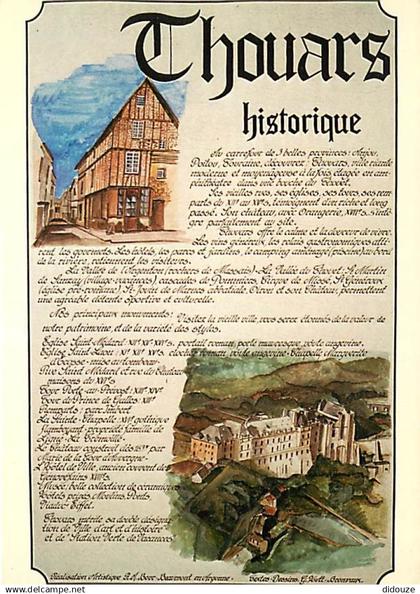 Thouars
historique
Au carrefour de 3 belles provinces: Anjou,
Poitou, Touraine, découvrez Thouars, ville riante
moderne et moyenâgeuse à la fois, étagée en am-
phithéâtre dans une boucle du Thouet.
Ses vieilles rues, ses églises, ses tours, ses rem-
parts du XIIe au XVe s, témoignent d'un riche et long
passé. Son château, avec Orangerie, XVIIe s, s'intè
gre parfaitement au site.
Thouars offre le calme et la douceur de vivre.
Les vins généreux, les relais gastronomiques atti-
rent les gourmets. Les hôtels, les parcs et jardins, le camping ombragé, piscine, au bord
de la rivière, retiennent les visiteurs.
La Vallée de l'Argenton (rochers de Massais). La Vallée du Thouet. St Martin
de Sanzay (village-vacances), cascades de Pommiers, Cirque de Missé, Ste Geneviève
Oiron et son Château, permettent
une agréable détente Sportive et culturelle.
Nos principaux monuments: Visitez la vieille ville, vous serez étonnés de la valeur de
notre patrimoine, et de la variété des styles.
Eglise Saint Médard XIIe XVe s, portail roman, porte mauresque, voûte angevine.
Eglise Saint Laon XIIe XVe s, clocher roman, voûte angevine. Chapelle Marguerite
d'Ecosse - son tombeau
Rue Saint Médard et rue du Château
maisons du XVe s
Tour Porte au Prévost XIIe XIVe
Tour du Prince de Galles XIIe
Remparts
La Sainte Chapelle XVIe gothique
La Trémoille
Le Château construit dès 1635 par
Marie de la Tour d'Auvergne
L'Hôtel de Ville, ancien couvent des
Génovéfains XVIIe s
Musée, belle collection de céramiques
Vieux Ponts
Viaduc Eiffel.
Thouars mérite sa double désigna
tion de Ville d'Art et d'histoire
et de Station Verte de Vacances
Réalisation Artistique Beaumont en Argonne - Textes. Dessins
didouze
www.delcampe.net